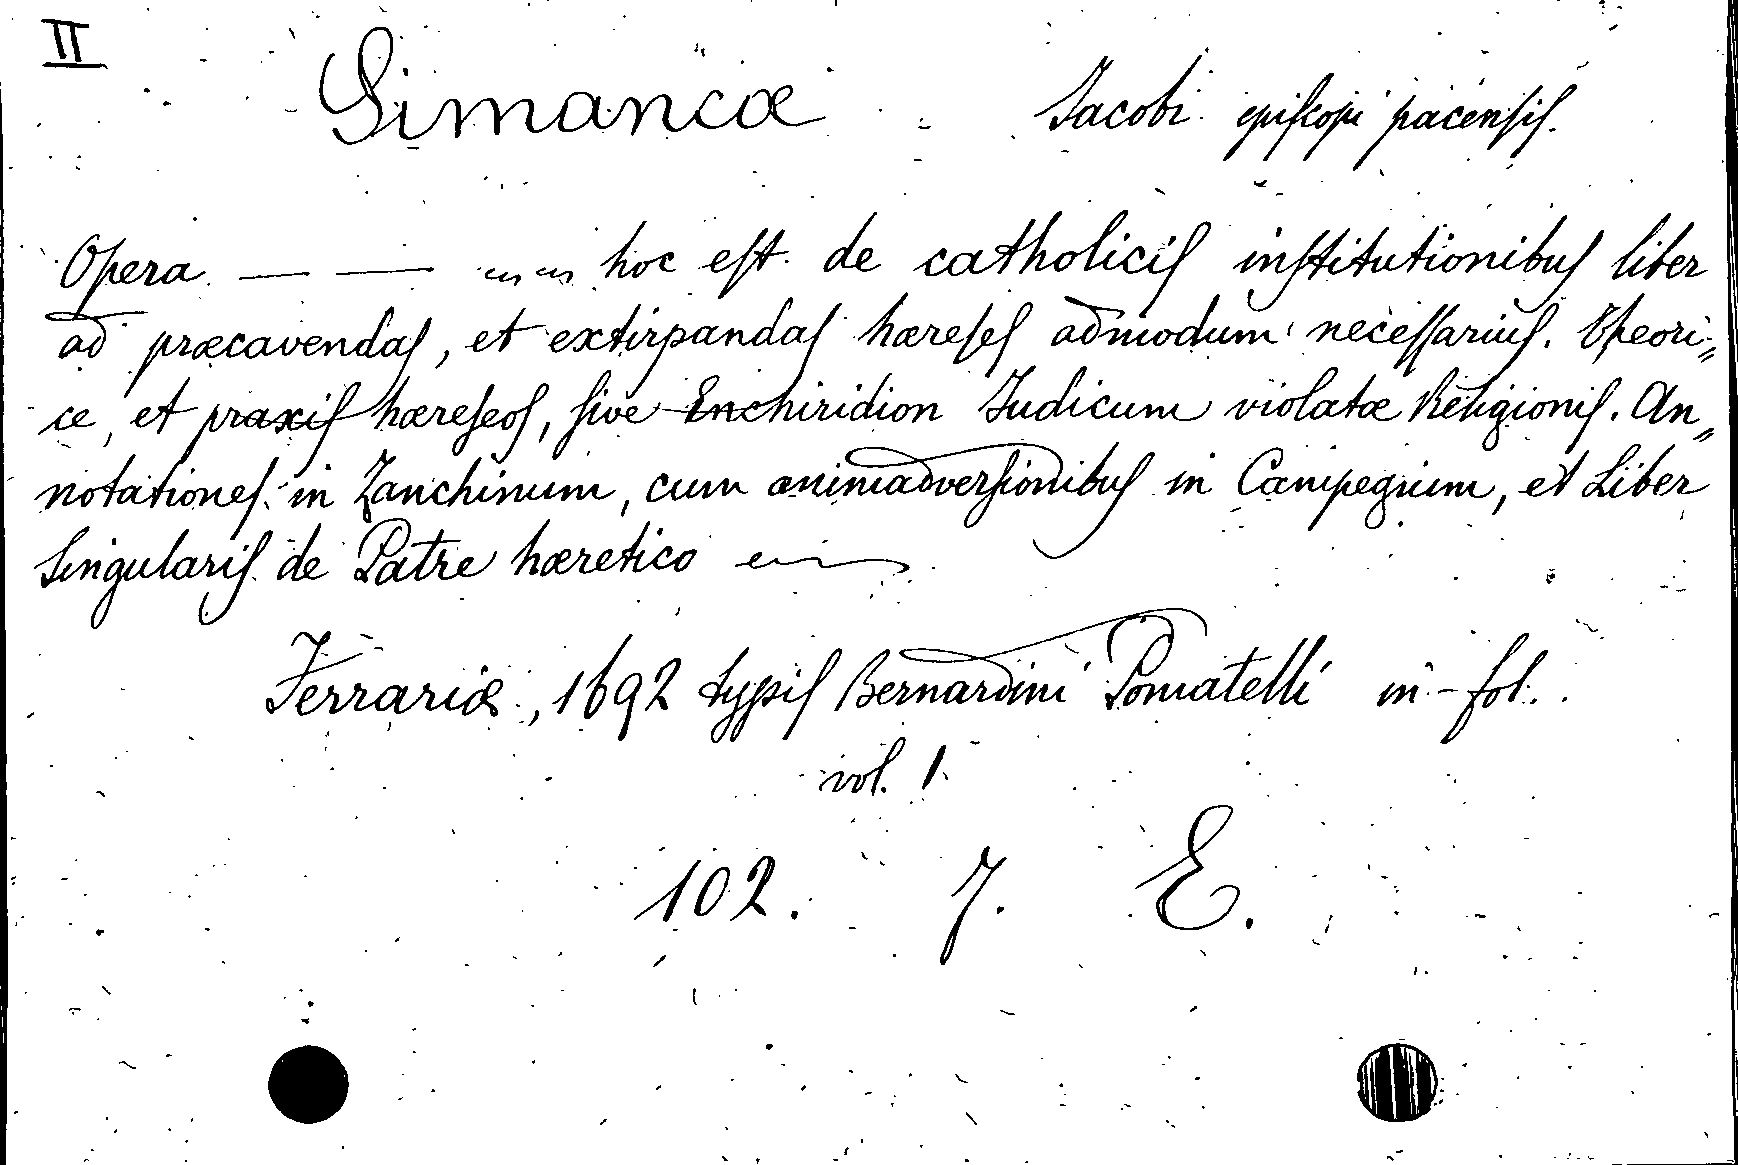 II
Simancæ Jacobi episcopi pacensis.
Opera — — hoc est de catholicis institutionibus liber
ad præcavendas, et extirpandas hæreses admodum necessarius. Theori„
ce, et praxis hæreseos, sive Enchiridion Judicum violatæ Religionis. An„
notationes in Zanchinum, cum animadversionibus in Campegium, et Liber
Singularis de Patre hæretico
Ferrariæ, 1692 typis Bernardini Pomatelli in-fol.
vol. 1
102. 7. E.